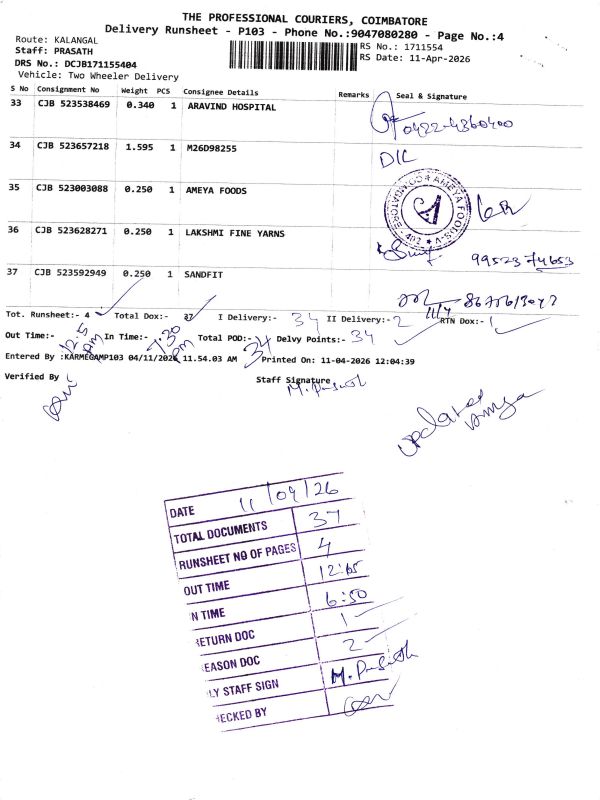 THE PROFESSIONAL COURIERS, COIMBATORE
Delivery Runsheet - P103 - Phone No.:9047080280 - Page No.:4
Route: KALANGAL
RS No.: 1711554
Staff: PRASATH
RS Date: 11-Apr-2026
DRS No.: DCJB171155404
Vehicle: Two Wheeler Delivery
S No Consignment No Weight PCS Consignee Details Remarks Seal & Signature
33 CJB 523538469 0.340 1 ARAVIND HOSPITAL
0422-4360400
34 CJB 523657218 1.595 1 M26D98255
D/L
35 CJB 523003088 0.250 1 AMEYA FOODS
AMEYA FOODS
COIMBATORE
36 CJB 523628271 0.250 1 LAKSHMI FINE YARNS
9952374653
37 CJB 523592949 0.250 1 SANDFIT
11/4
Tot. Runsheet:- 4 Total Dox:- 37 I Delivery:- 34 II Delivery:- 2 RTN Dox:- 1
Out Time:- 12.5 PM In Time:- 7.30 PM Total POD:- 34 Delvy Points:- 34
Entered By :KARMEGAMP103 04/11/2026 11.54.03 AM Printed On: 11-04-2026 12:04:39
Verified By Staff Signature
M. Prasath
updated
DATE 11/04/26
TOTAL DOCUMENTS 37
RUNSHEET NO OF PAGES 4
OUT TIME 12:05
N TIME 6:50
RETURN DOC 1
EASON DOC 2
LY STAFF SIGN M. Prasath
HECKED BY